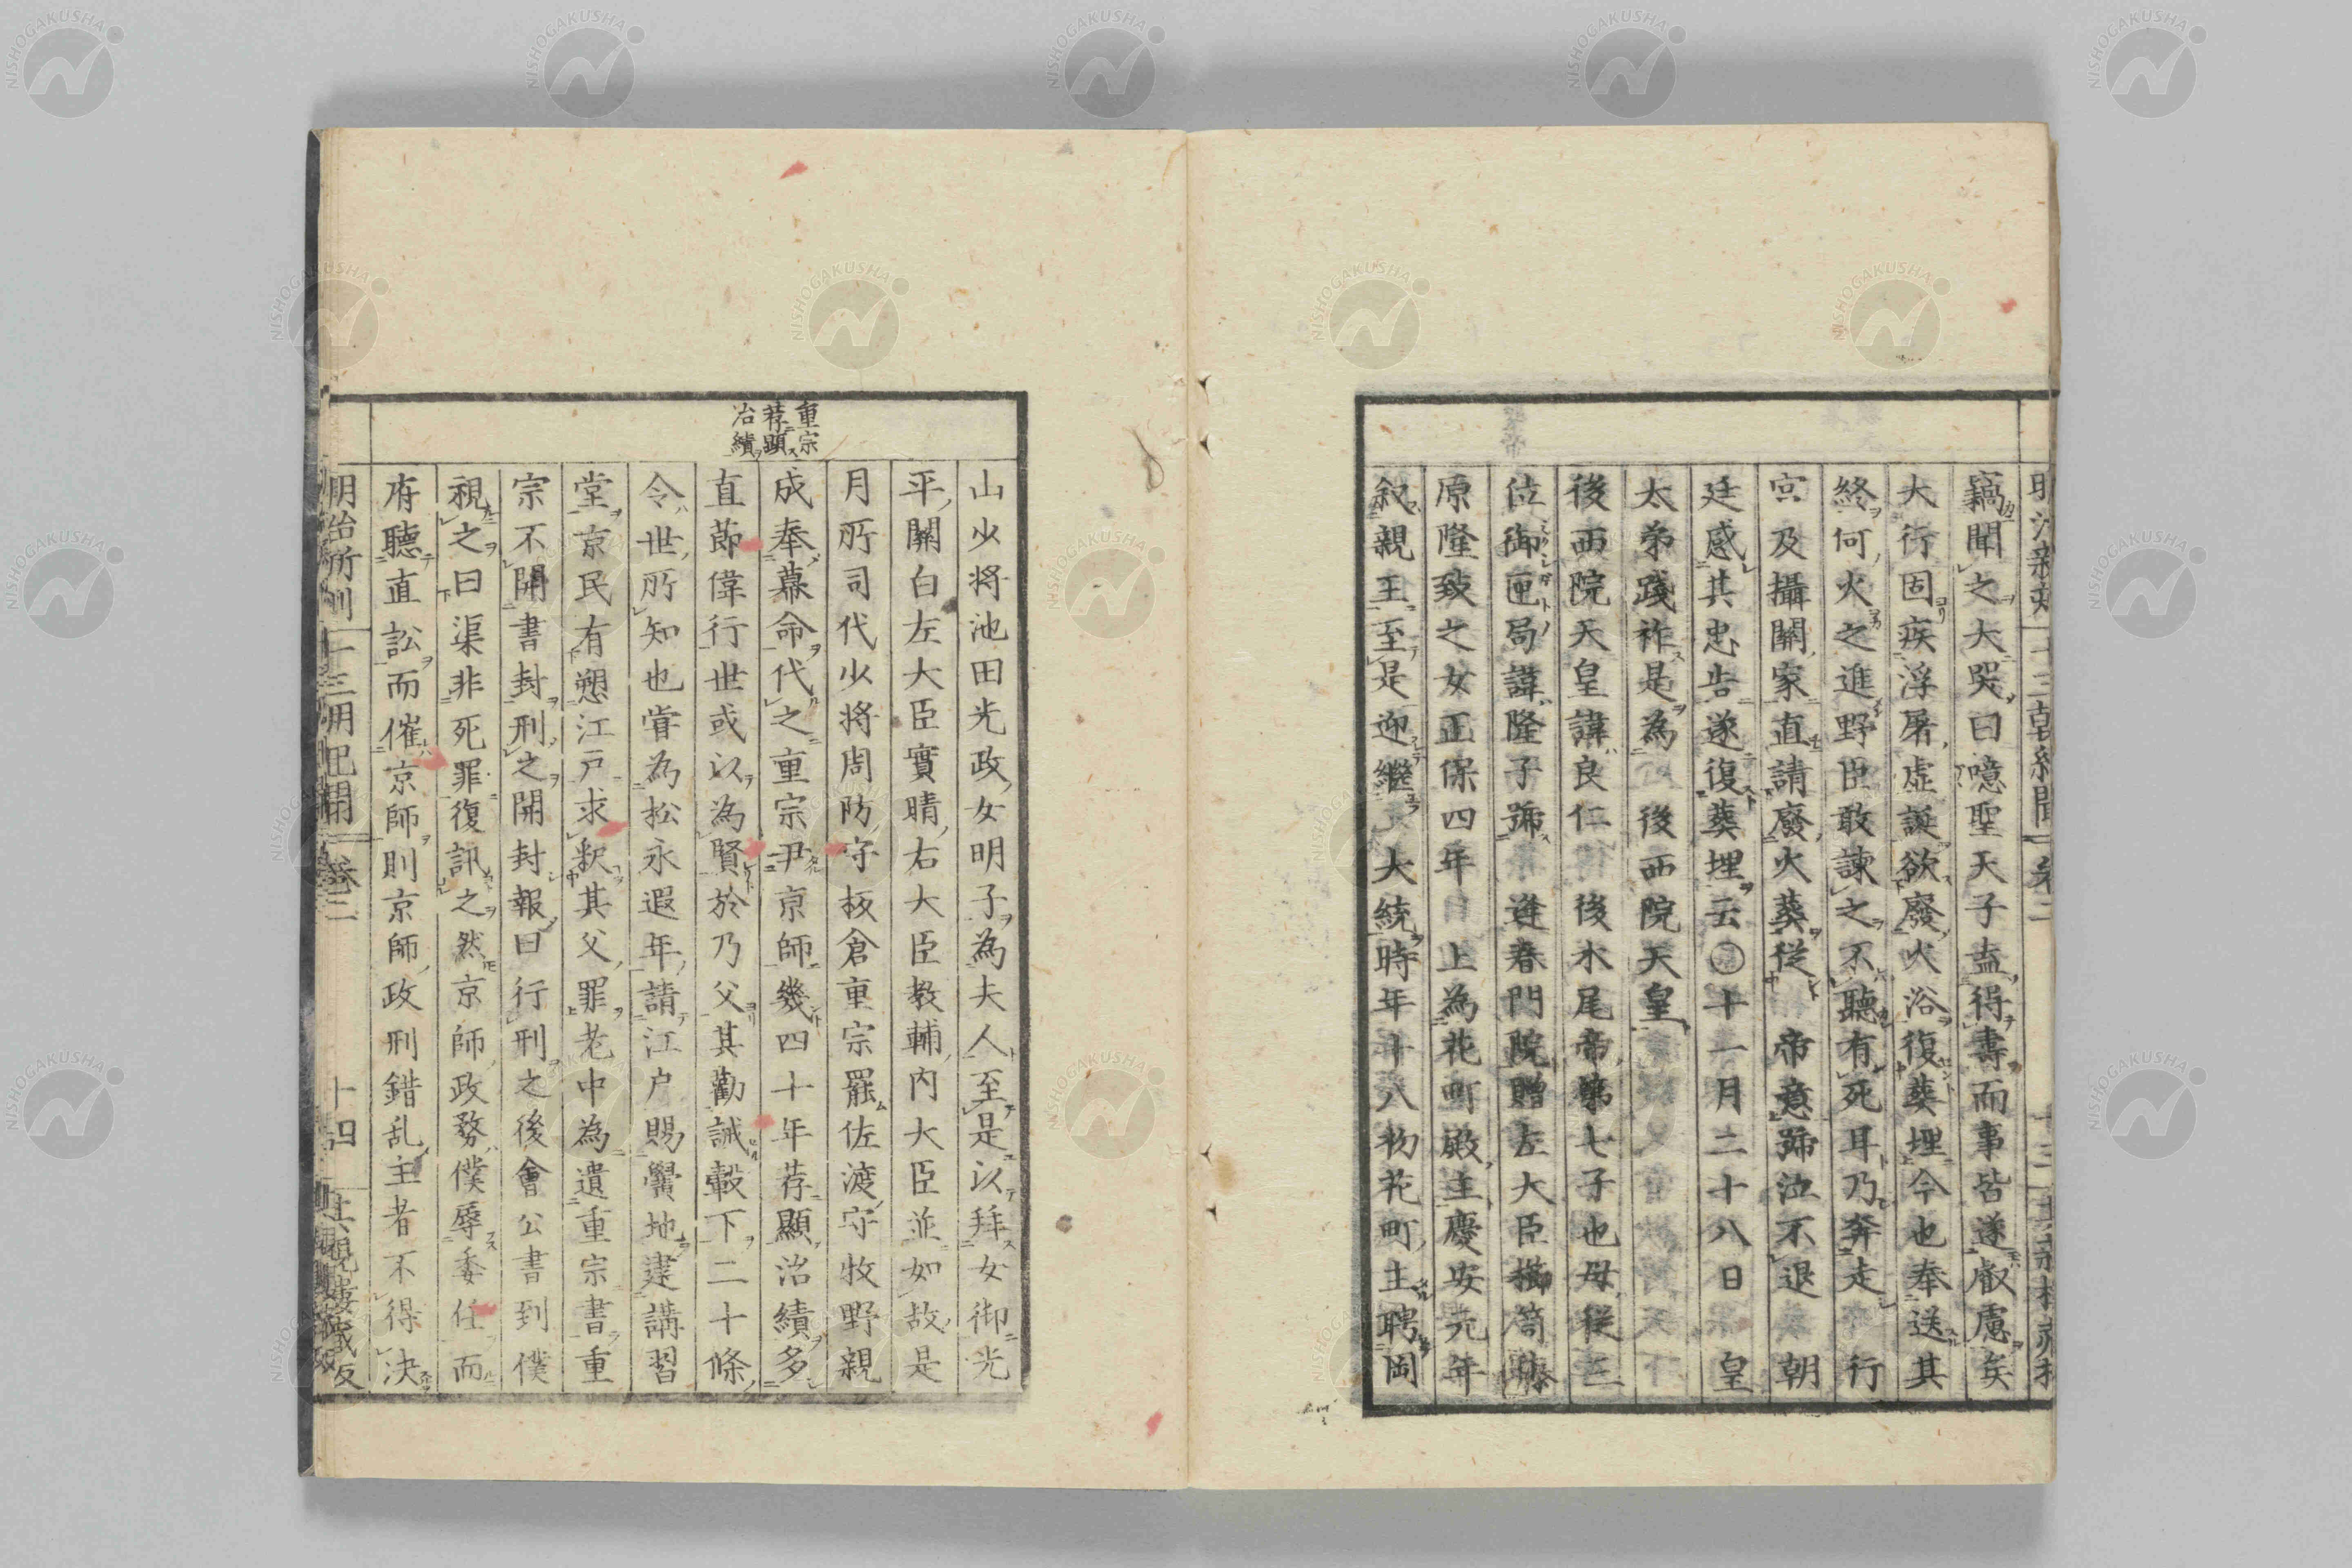 竊聞之大哭曰噫聖天子盍得壽而事皆遂叡慮矣
大行固疾浮屠虚誕欲廢火浴復葬埋今也奉送其
終何火之進野臣敢諫之不聽有死耳乃奔走行
宮及攝關家直請廢火葬従帝意號泣不退朝
廷感其忠告遂復葬埋云〇十一月二十八日皇
太弟踐祚是為後西院天皇
後西院天皇諱良仁後水尾帝第七子也母従三
位御匣局諱隆子號逢春門院贈左大臣櫛笥藤
原隆致之女正保四年上為花町殿主慶安元年
叙親王至是迎繼大統時年十八初花町主聘岡
山少将池田光政女明子為夫人至是以拜女御光
平關白左大臣實晴右大臣教輔内大臣並如故是
月所司代少将周防守板倉重宗罷佐渡守牧野親
重宗
荐顯
治績
成奉幕命代之重宗尹京師幾四十年荐顯治績多
直節偉行世或以為賢於乃父其勸誡轂下二十條
令世所知也嘗為松永遐年請江户賜黌地建講習
堂京民有愬江戸求釈其父罪老中為遺重宗書重
宗不開書封刑之開封報曰行刑之後會公書到僕
視之曰渠非死罪復訊之然京師政務僕辱委任而
府聽直訟而催京師則京師政刑錯乱主者不得決
十四
NISHOGAKUSHA